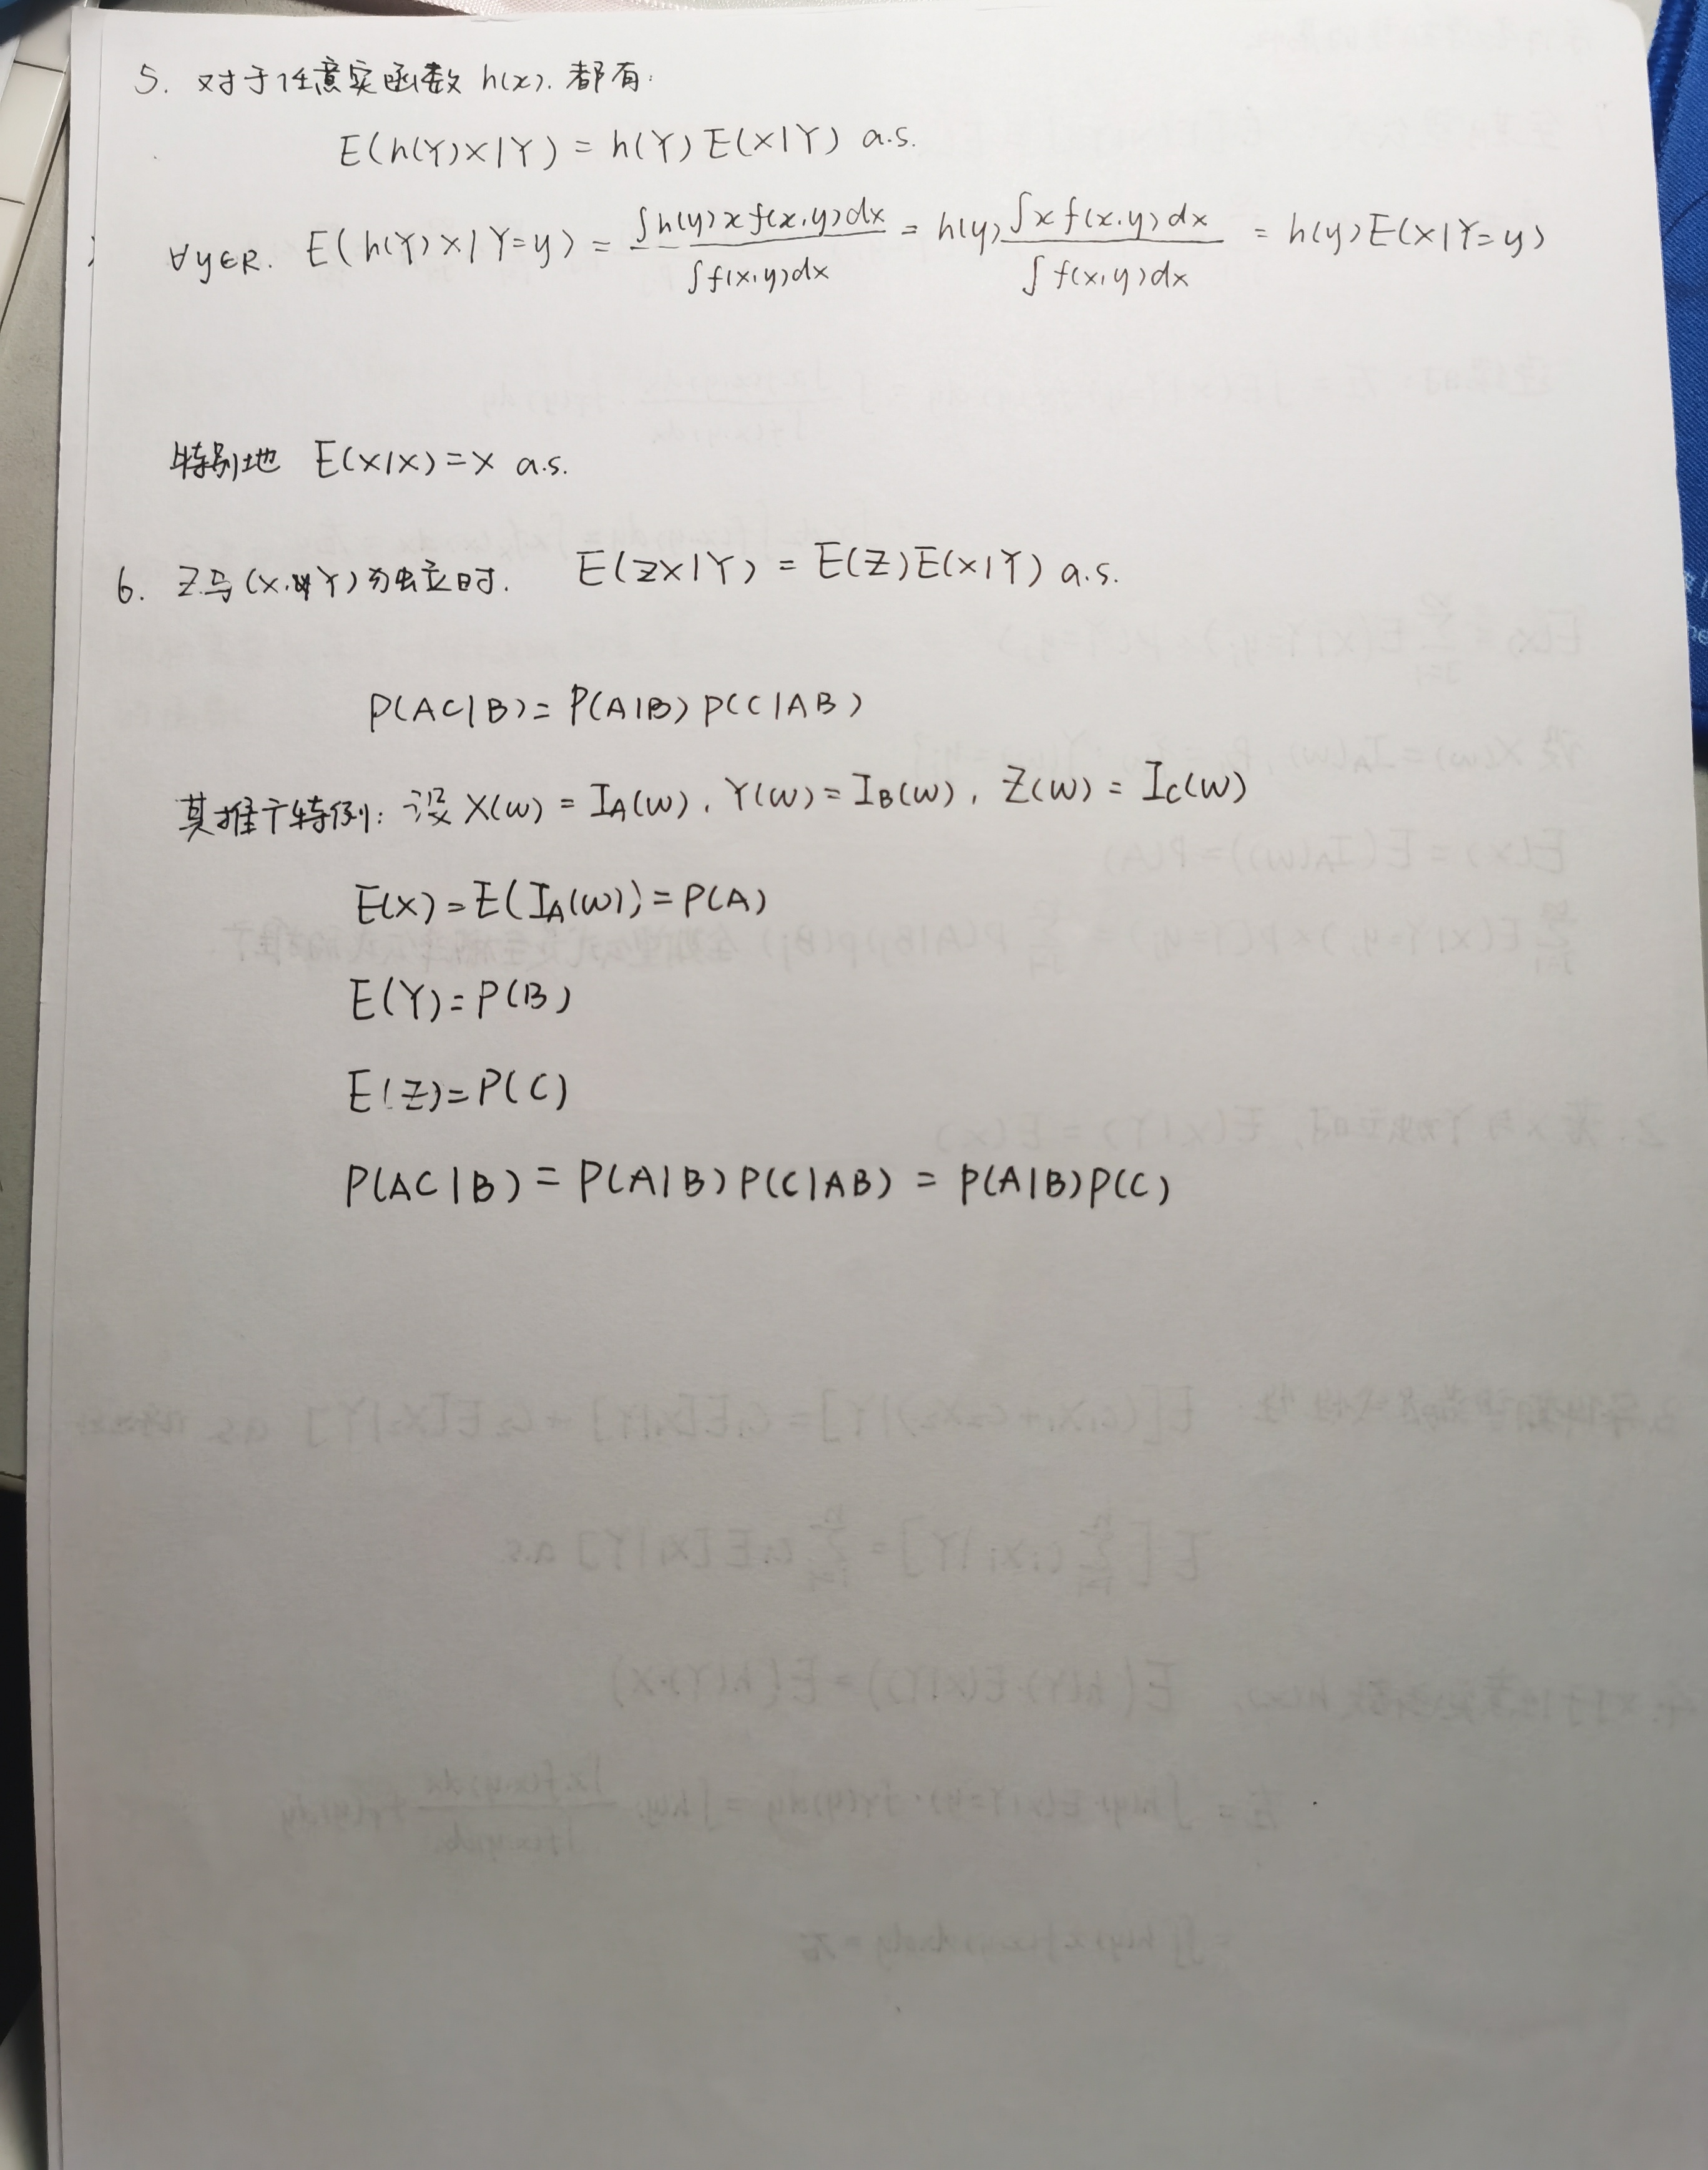 5. 对于任意实函数 h(x). 都有:
E(h(Y)X|Y) = h(Y)E(X|Y) a.s.
∀y∈R. E(h(Y)X|Y=y) = ∫h(y)xf(x,y)dx / ∫f(x,y)dx = h(y) ∫xf(x,y)dx / ∫f(x,y)dx = h(y)E(X|Y=y)
特别地 E(X|X)=X a.s.
6. Z与(X,Y)为独立时. E(ZX|Y) = E(Z)E(X|Y) a.s.
P(AC|B) = P(A|B)P(C|AB)
其推广特例: 设 X(ω) = I_A(ω), Y(ω) = I_B(ω), Z(ω) = I_C(ω)
E(X) = E(I_A(ω)) = P(A)
E(Y) = P(B)
E(Z) = P(C)
P(AC|B) = P(A|B)P(C|AB) = P(A|B)P(C)